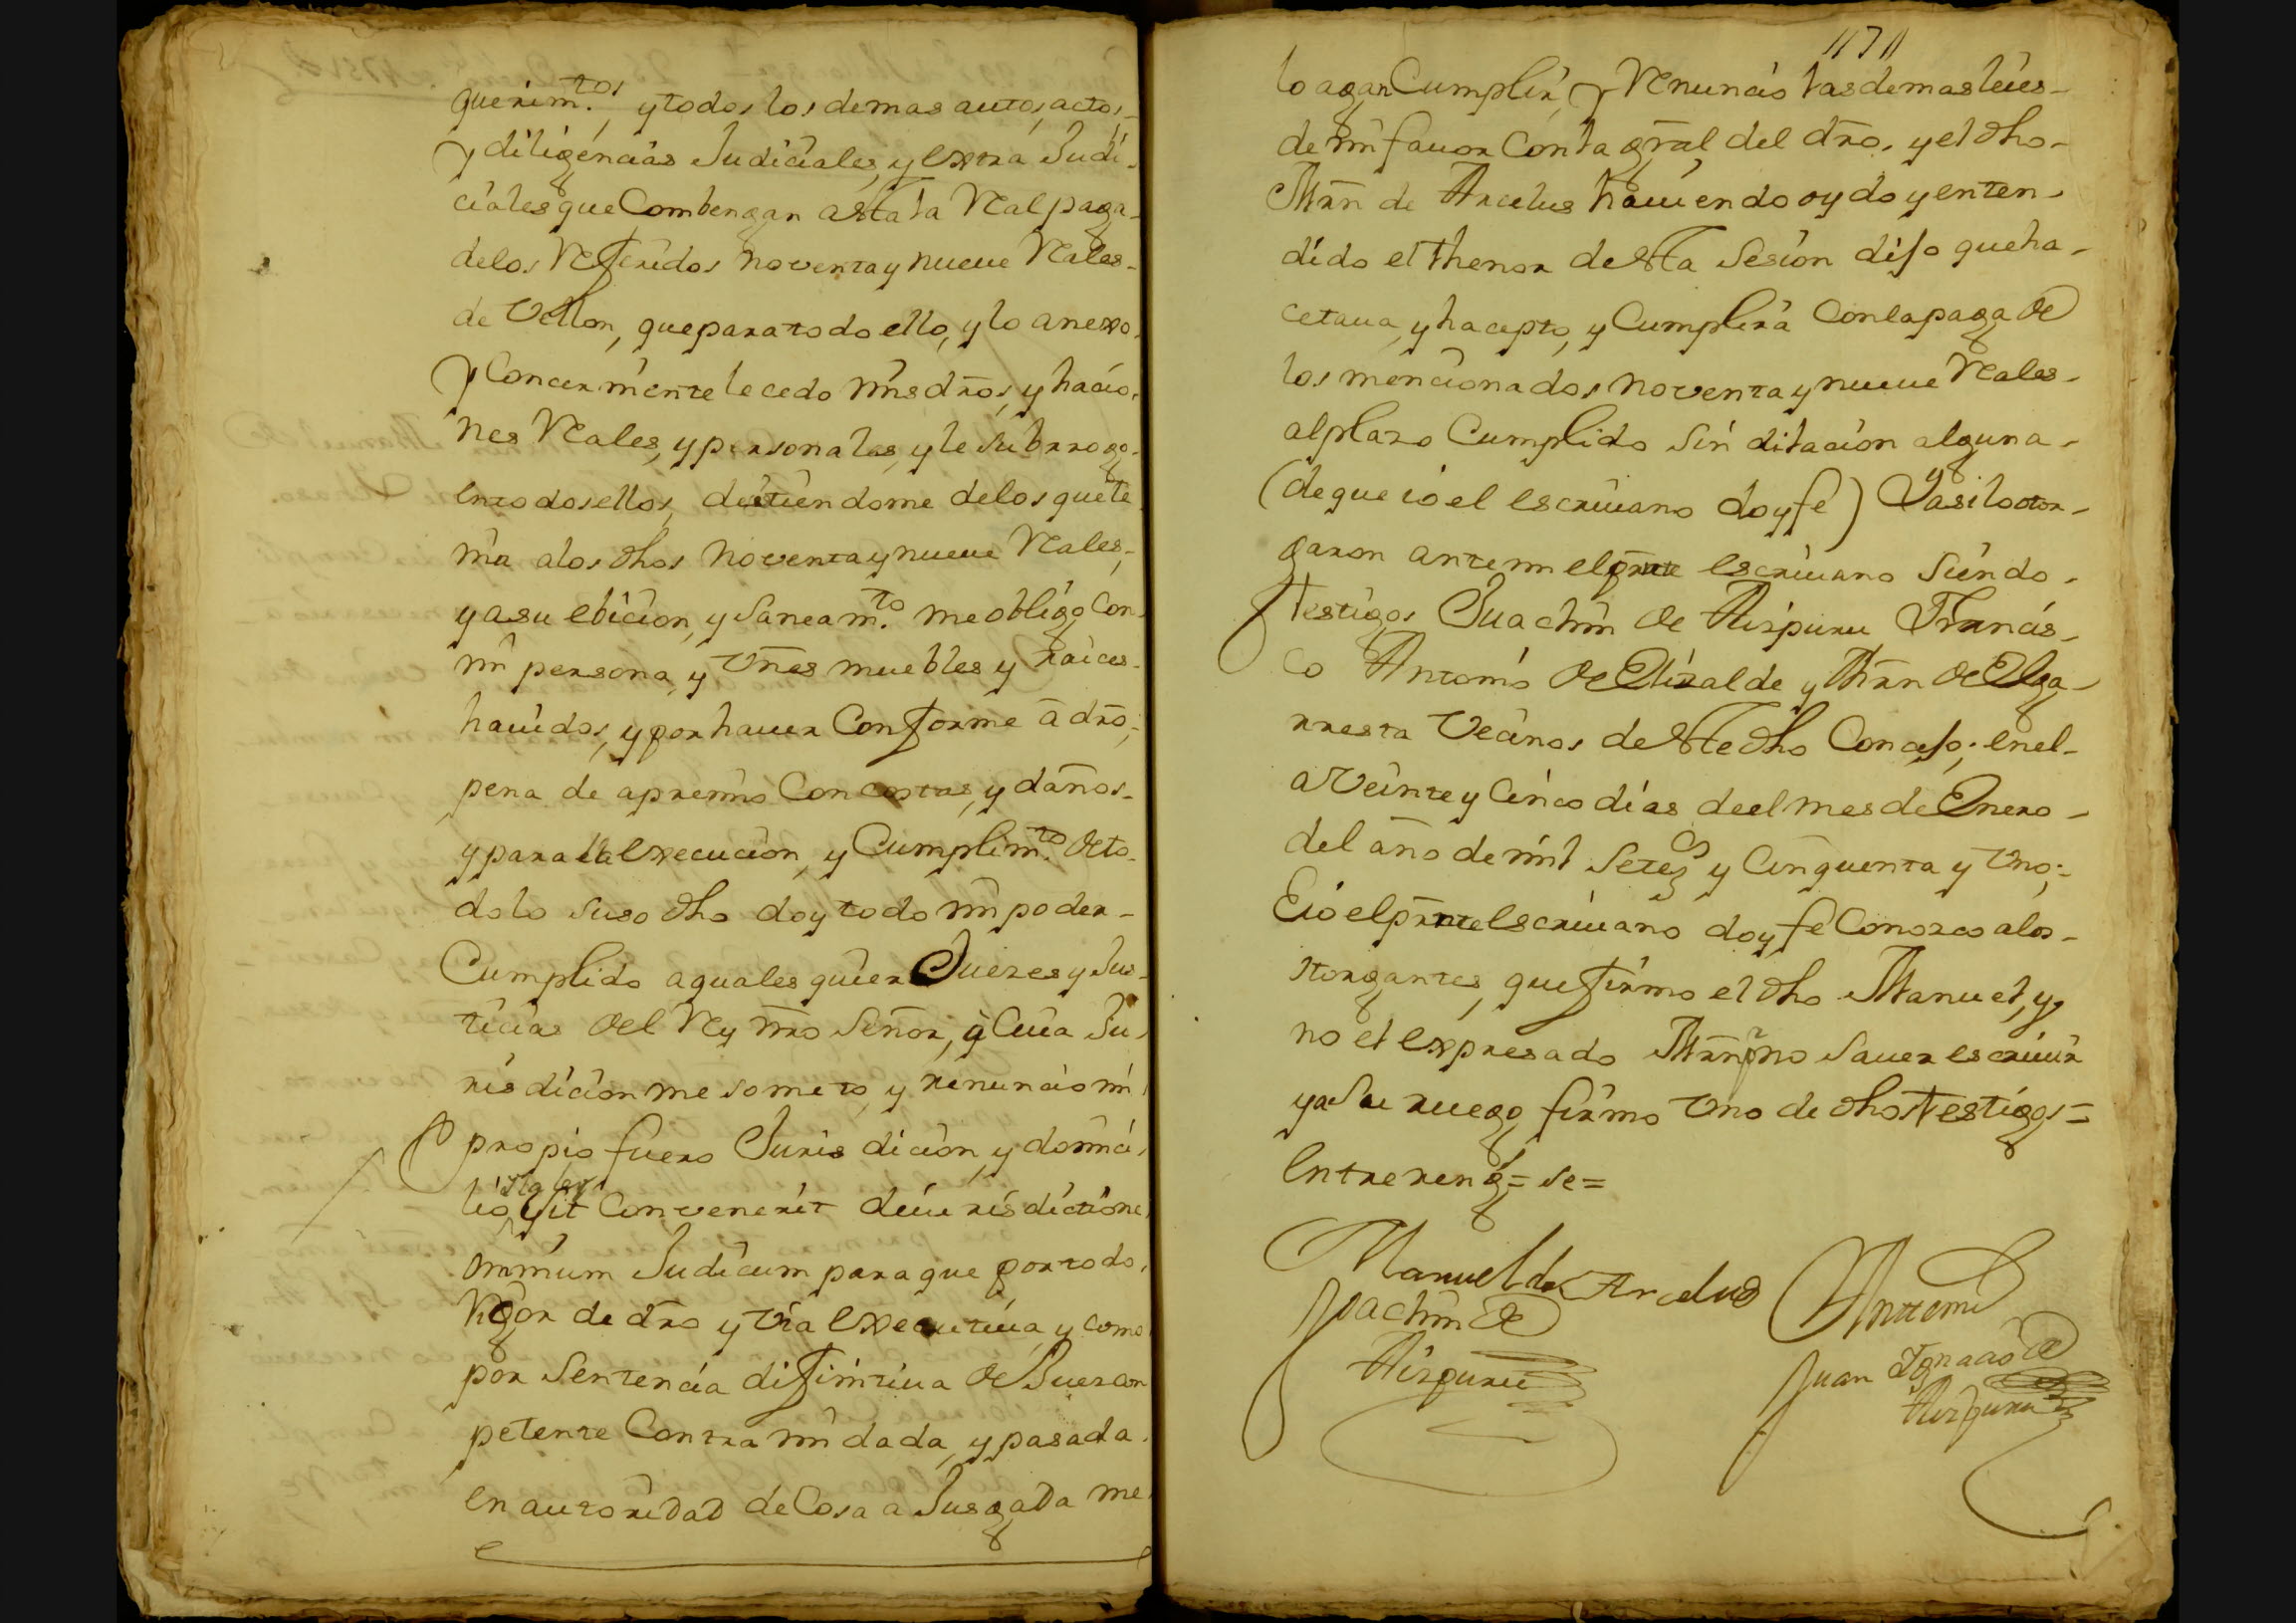 querim.tos, y todos los demas autos, actos,
y diligencias Judiciales, y extra Judi-
ciales que Combengan asta la Real paga-
de los Referidos noventa y nueve Reales-
de Vellon, que para todo ello, y lo anexo,
y Concermente le cedo mis dros, y hacio-
nes Reales, y personales, y le subrrogo-
en todos ellos, decitiendome de los que te
nia a los dhos noventa y nueve Reales,
y a su ebicion, y Saneam.to me obligo Con-
mi persona, y Vnes muebles y raices-
hauidos, y por hauer Conforme a dro;
pena de apremio Con costas, y daños-
y para la execucion, y Cumplim.to de to-
do lo suso dho doy todo mi poder-
Cumplido a quales quier Jueses y Jus-
ticias del Rey nro Señor, a Cuia Ju-
risdicion me someto, y renuncio mi
propio fuero Jurisdicion, y domici-
lio, y la ley sit Convenerit de iurisdictione
omnium Judicum para que por todo
Rigor de dro y via executiua, y como
por Sentencia difinitiua de Juez con
petente Contra mi dada, y pasada
en autoridad de Cosa a Jusgada me
1171
lo agan Cumplir, y Renuncio las demas leies-
de mi fauor Con la gral del dro, y el dho-
Mrn de Arcelus hauiendo oydo y enten-
dido el thenor de esta Sesion dijo que ha-
cetaua, y hacepto, y Cumplira Con la paga de
los mencionados noventa y nueue Reales-
al plazo Cumplido sin dilacion alguna-
(de que io el escriuano doy fe) Y asi lo otor-
garon ante mi el prnte escriuano siendo-
testigos Juachin de Aizpuru Francis-
co Antonio de Elizalde y Mrn de Elga-
rresta Vecinos de este dho Concejo; en el-
a Veinte y Cinco dias de el mes de Enero-
del año de mil Setez.s y Cinquenta y Vno;
E io el prnte escriuano doy fe Conosco a los-
otorgantes, que firmo el dho Manuel, y
no el expresado Mrn p.r no Sauer escriuir
y a su ruego firmo Vno de dhos testigos=
Entrereng.=se=
Manuel de Arcelus Ante mi
Joachin de
Aizpuru
Juan Ignacio de
Aizpuru